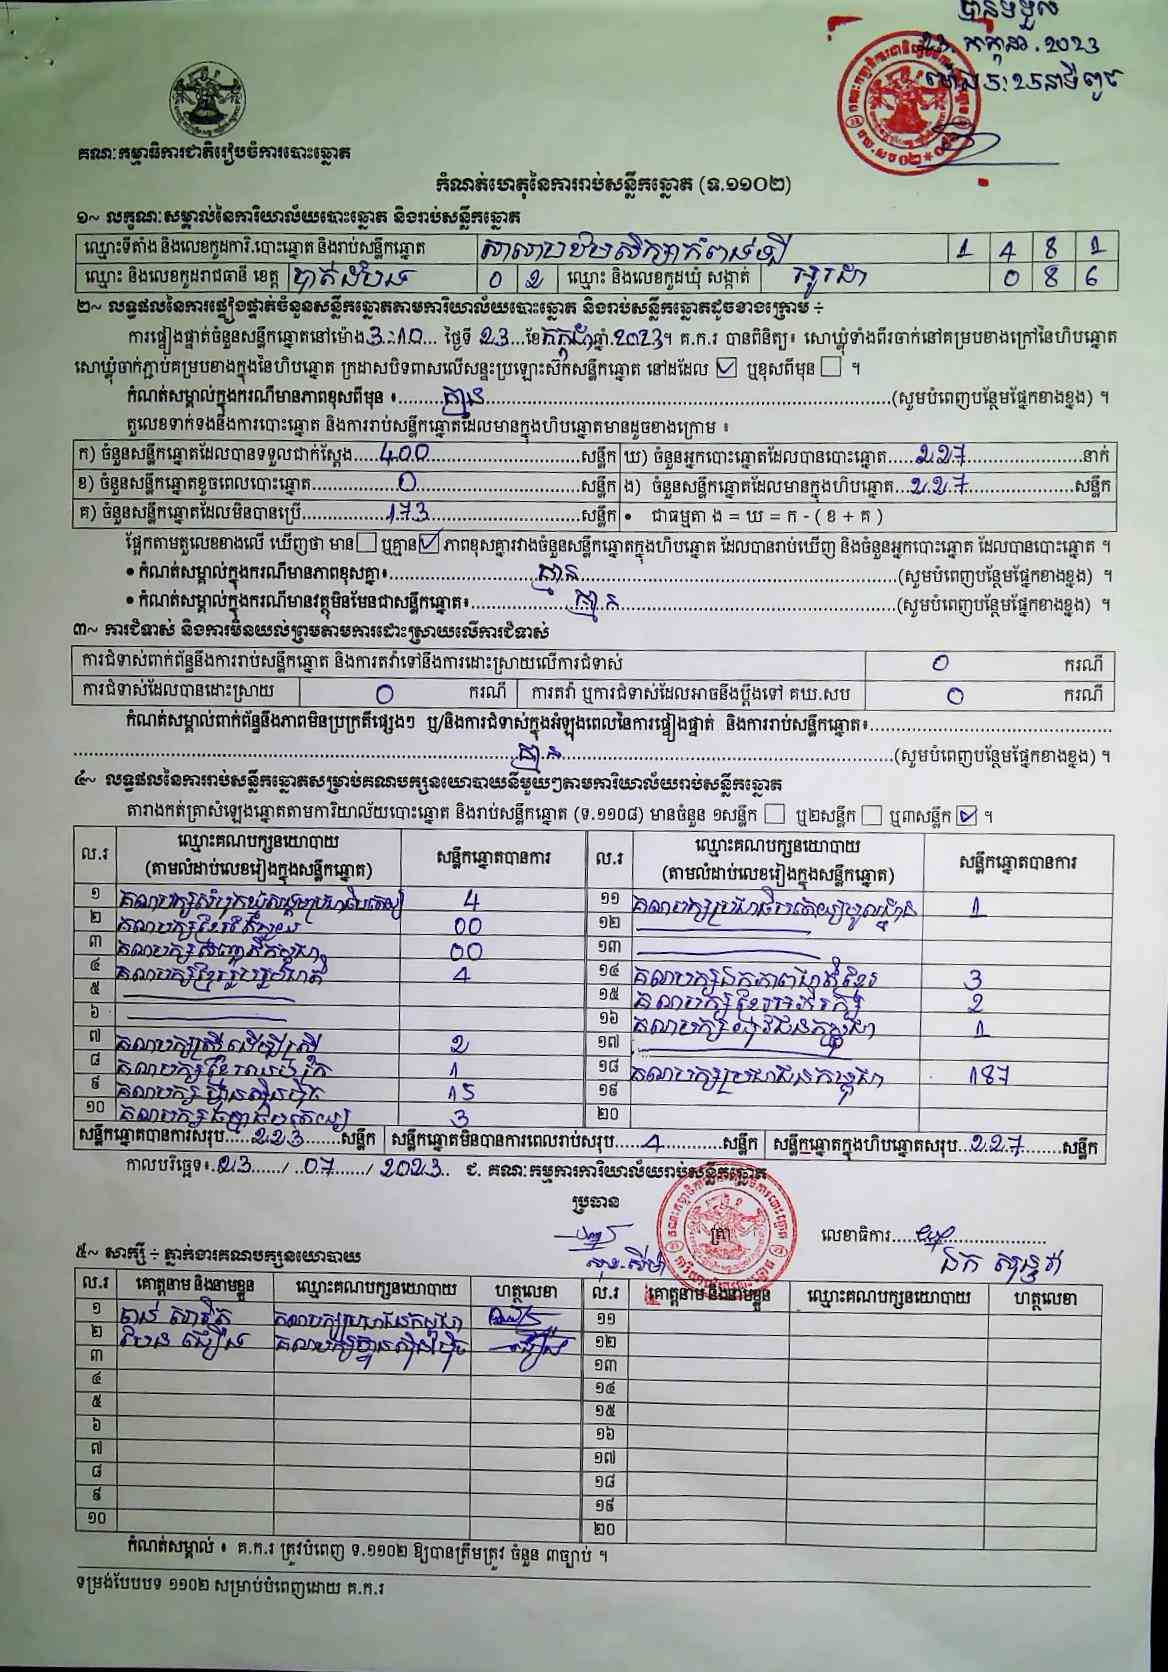 បានទទួល
23. កក្កដា. 2023
គណៈកម្មាធិការជាតិរៀបចំការបោះឆ្នោត
កំណត់ហេតុនៃការរាប់សន្លឹកឆ្នោត (ទ.១១០២)
១~ លក្ខណៈសម្គាល់នៃការិយាល័យបោះឆ្នោត និងរាប់សន្លឹកឆ្នោត
ឈ្មោះទីតាំង និងលេខកូដការិ.បោះឆ្នោត និងរាប់សន្លឹកឆ្នោត 1 4 8 1
ឈ្មោះ និងលេខកូដរាជធានី ខេត្ត បាត់ដំបង 0 2 ឈ្មោះ និងលេខកូដឃុំ សង្កាត់ 0 8 6
២~ លទ្ធផលនៃការផ្ទៀងផ្ទាត់ចំនួនសន្លឹកឆ្នោតតាមការិយាល័យបោះឆ្នោត និងរាប់សន្លឹកឆ្នោតដូចខាងក្រោម ÷
ការផ្ទៀងផ្ទាត់ចំនួនសន្លឹកឆ្នោតនៅម៉ោង 3:10... ថ្ងៃទី 23...ខែកក្កដាឆ្នាំ.2023។ គ.ក.រ បានពិនិត្យ៖ សោឃ្លុំទាំងពីរចាក់នៅគម្របខាងក្រៅនៃហិបឆ្នោត
សោឃ្លុំចាក់ភ្ជាប់គម្របខាងក្នុងនៃហិបឆ្នោត ក្រដាសបិទពាសលើសន្ទះប្រឡោះស៊កសន្លឹកឆ្នោត នៅដដែល ☑ ឬខុសពីមុន ☐ ។
កំណត់សម្គាល់ក្នុងករណីមានភាពខុសពីមុន ៖........គ្មាន........(សូមបំពេញបន្ថែមផ្នែកខាងខ្នង) ។
តួលេខទាក់ទងនឹងការបោះឆ្នោត និងការរាប់សន្លឹកឆ្នោតដែលមានក្នុងហិបឆ្នោតមានដូចខាងក្រោម ៖
ក) ចំនួនសន្លឹកឆ្នោតដែលបានទទួលជាក់ស្តែង.....400.....សន្លឹក ឃ) ចំនួនអ្នកបោះឆ្នោតដែលបានបោះឆ្នោត.....227.....នាក់
ខ) ចំនួនសន្លឹកឆ្នោតខូចពេលបោះឆ្នោត.....0.....សន្លឹក ង) ចំនួនសន្លឹកឆ្នោតដែលមានក្នុងហិបឆ្នោត...227.....សន្លឹក
គ) ចំនួនសន្លឹកឆ្នោតដែលមិនបានប្រើ.....173.....សន្លឹក • ជាធម្មតា ង = ឃ = ក - ( ខ + គ )
ផ្អែកតាមតួលេខខាងលើ ឃើញថា មាន ☐ ឬគ្មាន ☑ ភាពខុសគ្នារវាងចំនួនសន្លឹកឆ្នោតក្នុងហិបឆ្នោត ដែលបានរាប់ឃើញ និងចំនួនអ្នកបោះឆ្នោត ដែលបានបោះឆ្នោត ។
• កំណត់សម្គាល់ក្នុងករណីមានភាពខុសគ្នា៖........គ្មាន........(សូមបំពេញបន្ថែមផ្នែកខាងខ្នង) ។
• កំណត់សម្គាល់ក្នុងករណីមានវត្ថុមិនមែនជាសន្លឹកឆ្នោត៖........គ្មាន........(សូមបំពេញបន្ថែមផ្នែកខាងខ្នង) ។
៣~ ការជំទាស់ និងការមិនយល់ព្រមតាមការដោះស្រាយលើការជំទាស់
ការជំទាស់ពាក់ព័ន្ធនឹងការរាប់សន្លឹកឆ្នោត និងការតវ៉ាទៅនឹងការដោះស្រាយលើការជំទាស់ 0 ករណី
ការជំទាស់ដែលបានដោះស្រាយ 0 ករណី ការតវ៉ា ឬការជំទាស់ដែលអាចនឹងប្តឹងទៅ គឃ.សប 0 ករណី
កំណត់សម្គាល់ពាក់ព័ន្ធនឹងភាពមិនប្រក្រតីផ្សេងៗ ឬ/និងការជំទាស់ក្នុងអំឡុងពេលនៃការផ្ទៀងផ្ទាត់ និងការរាប់សន្លឹកឆ្នោត៖........
........គ្មាន........(សូមបំពេញបន្ថែមផ្នែកខាងខ្នង) ។
៤~ លទ្ធផលនៃការរាប់សន្លឹកឆ្នោតសម្រាប់គណបក្សនយោបាយនីមួយៗតាមការិយាល័យរាប់សន្លឹកឆ្នោត
តារាងកត់ត្រាសំឡេងឆ្នោតតាមការិយាល័យបោះឆ្នោត និងរាប់សន្លឹកឆ្នោត (ទ.១១០៨) មានចំនួន ១សន្លឹក ☐ ឬ២សន្លឹក ☐ ឬ៣សន្លឹក ☑ ។
ល.រ ឈ្មោះគណបក្សនយោបាយ (តាមលំដាប់លេខរៀងក្នុងសន្លឹកឆ្នោត) សន្លឹកឆ្នោតបានការ ល.រ ឈ្មោះគណបក្សនយោបាយ (តាមលំដាប់លេខរៀងក្នុងសន្លឹកឆ្នោត) សន្លឹកឆ្នោតបានការ
១ គណបក្សសំបុកឃ្មុំសង្គមប្រជាធិបតេយ្យ 4 ១១ គណបក្សប្រជាធិបតេយ្យមូលដ្ឋាន 1
២ 00 ១២
៣ 00 ១៣
៤ គណបក្សខ្មែររួបរួមជាតិ 4 ១៤ គណបក្សឯកភាពជាតិខ្មែរ 3
៥ ១៥ គណបក្សខ្មែរអភិរក្ស 2
៦ ១៦ គណបក្សយុវជនកម្ពុជា 1
៧ គណបក្សស្ត្រីដើម្បីស្ត្រី 2 ១៧
៨ 1 ១៨ គណបក្សប្រជាជនកម្ពុជា 187
៩ គណបក្សហ្វ៊ុនស៊ិនប៉ិច 15 ១៩
១០ គណបក្សធម្មាធិបតេយ្យ 3 ២០
សន្លឹកឆ្នោតបានការសរុប.....223.....សន្លឹក សន្លឹកឆ្នោតមិនបានការពេលរាប់សរុប.....4.....សន្លឹក សន្លឹកឆ្នោតក្នុងហិបឆ្នោតសរុប...227.....សន្លឹក
កាលបរិច្ឆេទ៖.23....../.07....../2023.. ជ. គណៈកម្មការការិយាល័យរាប់សន្លឹកឆ្នោត
ប្រធាន
ត្រា
លេខាធិការ........
៥~ សាក្សី ÷ ភ្នាក់ងារគណបក្សនយោបាយ
ល.រ គោត្តនាម និងនាមខ្លួន ឈ្មោះគណបក្សនយោបាយ ហត្ថលេខា ល.រ គោត្តនាម និងនាមខ្លួន ឈ្មោះគណបក្សនយោបាយ ហត្ថលេខា
១ គណបក្សប្រជាជនកម្ពុជា ១១
២ គណបក្សហ្វ៊ុនស៊ិនប៉ិច ១២
៣ ១៣
៤ ១៤
៥ ១៥
៦ ១៦
៧ ១៧
៨ ១៨
៩ ១៩
១០ ២០
កំណត់សម្គាល់ ៖ គ.ក.រ ត្រូវបំពេញ ទ.១១០២ ឱ្យបានត្រឹមត្រូវ ចំនួន ៣ច្បាប់ ។
ទម្រង់បែបបទ ១១០២ សម្រាប់បំពេញដោយ គ.ក.រ